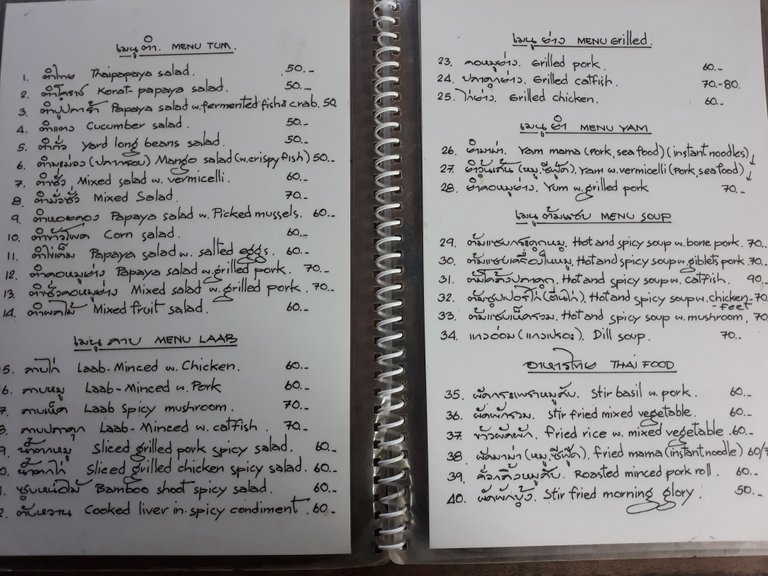 เมนู ตำ. MENU TUM.
1. ตำไทย Thaipapaya salad. 50.-
2. ตำโคราช Korat papaya salad. 50.-
3. ตำปูปลาร้า Papaya salad w.fermented fish & crab. 50
4. ตำแตง Cucumber salad. 50.-
5. ตำถั่ว Yard long beans salad. 50.-
6. ตำมะม่วง (ปลากรอบ) Mango salad (w.crispy fish) 50.-
7. ตำซั่ว Mixed salad w. vermicelli. 60.-
8. ตำมั่วซั่ว Mixed Salad. 70.-
9. ตำหอยดอง Papaya salad w. Picked mussels. 60.-
10. ตำข้าวโพด Corn salad. 60.-
11. ตำไข่เค็ม Papaya salad w. salted eggs. 60.-
12. ตำคอหมูย่าง Papaya salad w.grilled pork. 70.-
13. ตำซั่วคอหมูย่าง Mixed salad w.grilled pork. 70.-
14. ตำผลไม้ Mixed fruit salad. 60.-
เมนู ลาบ MENU LAAB
5. ลาบไก่ Laab-Minced w. Chicken. 60.-
6. ลาบหมู Laab-Minced w. Pork 60.-
7. ลาบเห็ด Laab Spicy mushroom. 70.-
8. ลาบปลาดุก Laab-Minced w. catfish. 70.-
9. น้ำตกหมู Sliced grilled pork spicy salad. 60.-
0. น้ำตกไก่ Sliced grilled chicken spicy salad. 60.-
ซุบหน่อไม้ Bamboo shoot spicy salad. 60.-
2. ตับหวาน Cooked liver in spicy condiment. 60.-
เมนู ย่าง MENU Grilled.
23. คอหมูย่าง. Grilled pork. 60.-
24. ปลาดุกย่าง. Grilled catfish. 70.-80.
25. ไก่ย่าง. Grilled chicken. 60.-
เมนู ยำ MENU YAM
26. ยำมาม่า. Yam mama (Pork, sea food) (instant noodles)
27. ยำวุ้นเส้น (หมู,ซีฟู้ด). Yam w.vermicelli (Pork, seafood)
28. ยำคอหมูย่าง. Yum w.grilled pork 70.-
เมนู ต้มแซบ MENU SOUP
29. ต้มแซบกระดูกหมู. Hot and spicy soup w. bone pork. 70.-
30. ต้มแซบเครื่องในหมู. Hot and spicy soup w.giblets pork. 70.-
31. ต้มโคล้งปลาดุก. Hot and spicy soup w. catfish. 90.-
32. ต้มซุปเปอร์ไก่ (ตีนไก่). Hot and spicy soup w. chicken feet 70.-
33. ต้มแซบเห็ดรวม. Hot and spicy soup w. mushroom. 70.-
34. แกงอ่อม (แกงเปอะ). Dill soup. 70..
อาหารไทย THAI FOOD
35. ผัดกระเพราหมูสับ. Stir basil w. pork. 60.-
36. ผัดผักรวม. Stir fried mixed vegetable. 60.-
37. ข้าวผัดผัก. Fried rice w. mixed vegetable. 60.-
38. ผัดมาม่า (หมู,ซีฟู้ด). Fried mama (instant noodle) 60/
39. คั่วกลิ้งหมูสับ. Roasted minced pork roll. 60.-
40. ผัดผักบุ้ง. Stir fried morning glory. 50.-